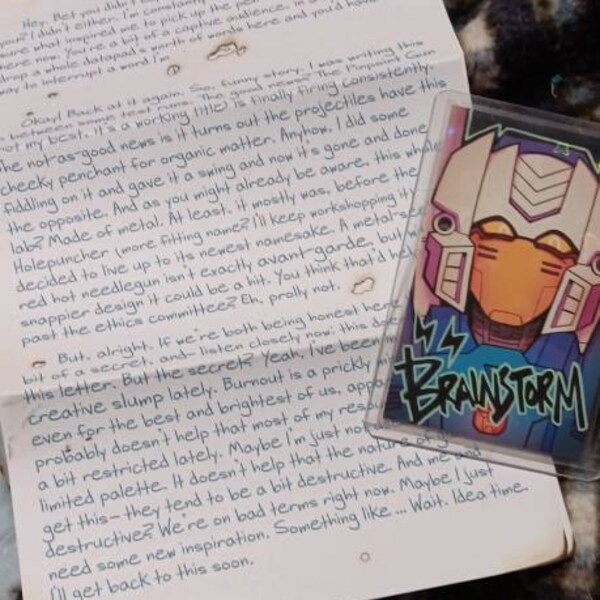 Hey. Bet you didn't
you? I didn't either. I'm constantly
what inspired me to pick up the pen
here now. You're a bit of a captive audience. In a
drop a whole datapad's worth of word here and you'd have
way to interrupt a word I'm
Okay! Back at it again. So, funny story. I was writing this
between some test runs. The good news? The Pinpoint Gun
not my best, it's a working title) is finally firing consistently.
The not-as-good news is it turns out the projectiles have this
cheeky penchant for organic matter. Anyhow, I did some
fiddling on it and gave it a swing and now it's gone and done
the opposite. And as you might already be aware, this whole
lab? Made of metal. At least, it mostly was, before the
Holepuncher (more fitting name? I'll keep workshopping it)
decided to live up to its newest namesake. A metal-
red hot needlegun isn't exactly avant-garde, but
snappier design it could be a hit. You think that'd
past the ethics committee? Eh, prolly not.
But, alright. If we're both being honest here
bit of a secret, and— listen closely now: this
this letter. But the secret? Yeah. I've been
creative slump lately. Burnout is a prickly
even for the best and brightest of us,
probably doesn't help that most of my
a bit restricted lately. Maybe I'm just not
limited palette. It doesn't help that the nature of
get this— they tend to be a bit destructive. And me and
destructive? We're on bad terms right now. Maybe I just
need some new inspiration. Something like ... Wait. Idea time.
I'll get back to this soon.
BRAINSTORM